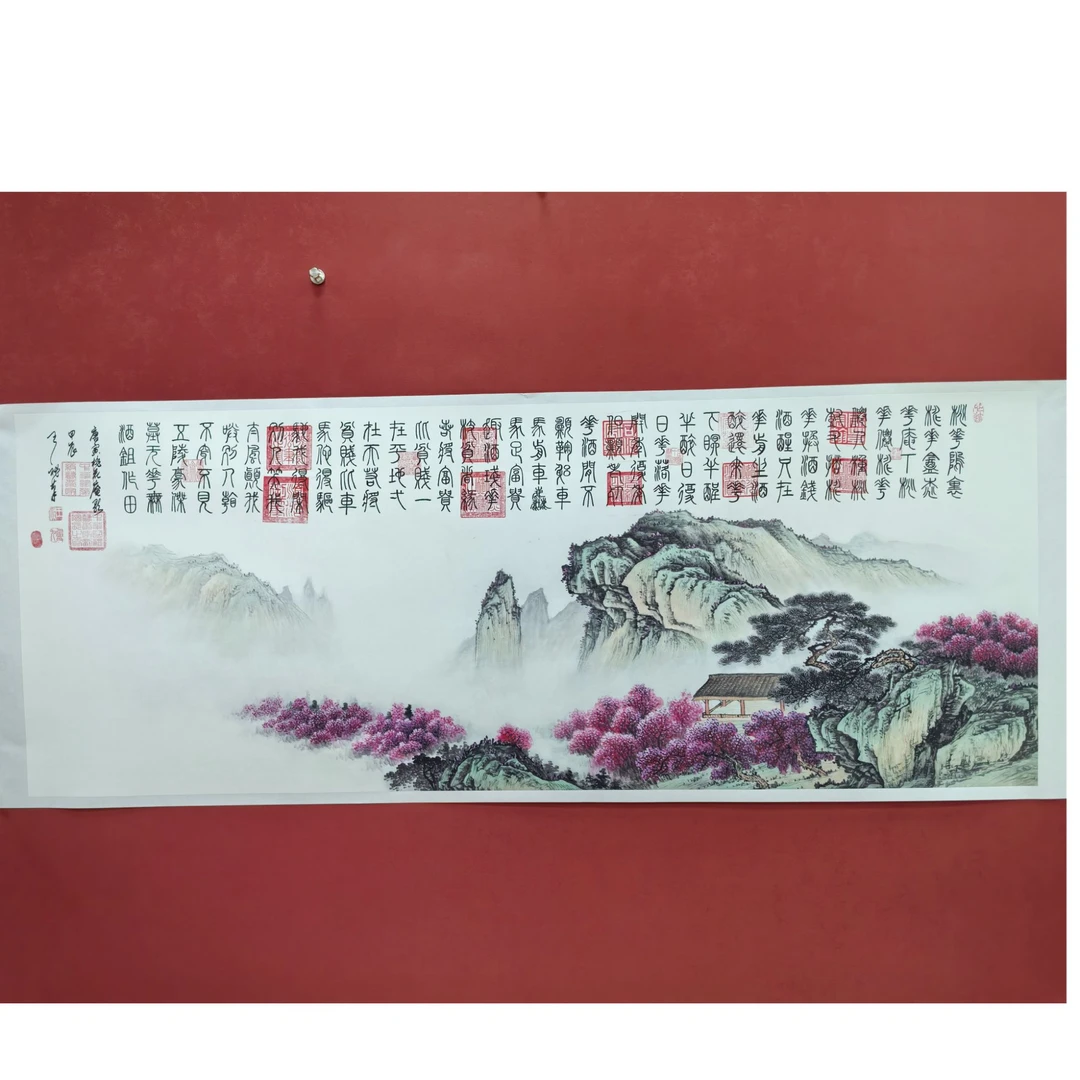 桃花隖裏
桃花盦桃
花盦下桃
花僊桃花
僊人種桃
樹又摘桃
花換酒錢
酒醒只在
花前坐酒
醉還來花
下眠半醒
半醉日復
日花落花
開年復年
但願老死
花酒間不
願鞠躬車
馬前車塵
馬足富貴
趣酒盞花
枝貧者緣
若將富貴
比貧賤一
在平地弌
在天若將
貧賤比車
馬他得驅
馳我得閒
別人笑我
太風顛我
笑他人看
不穿不見
五陵豪傑
墓无花無
酒鉏作田
唐寅桃花庵歌
甲辰